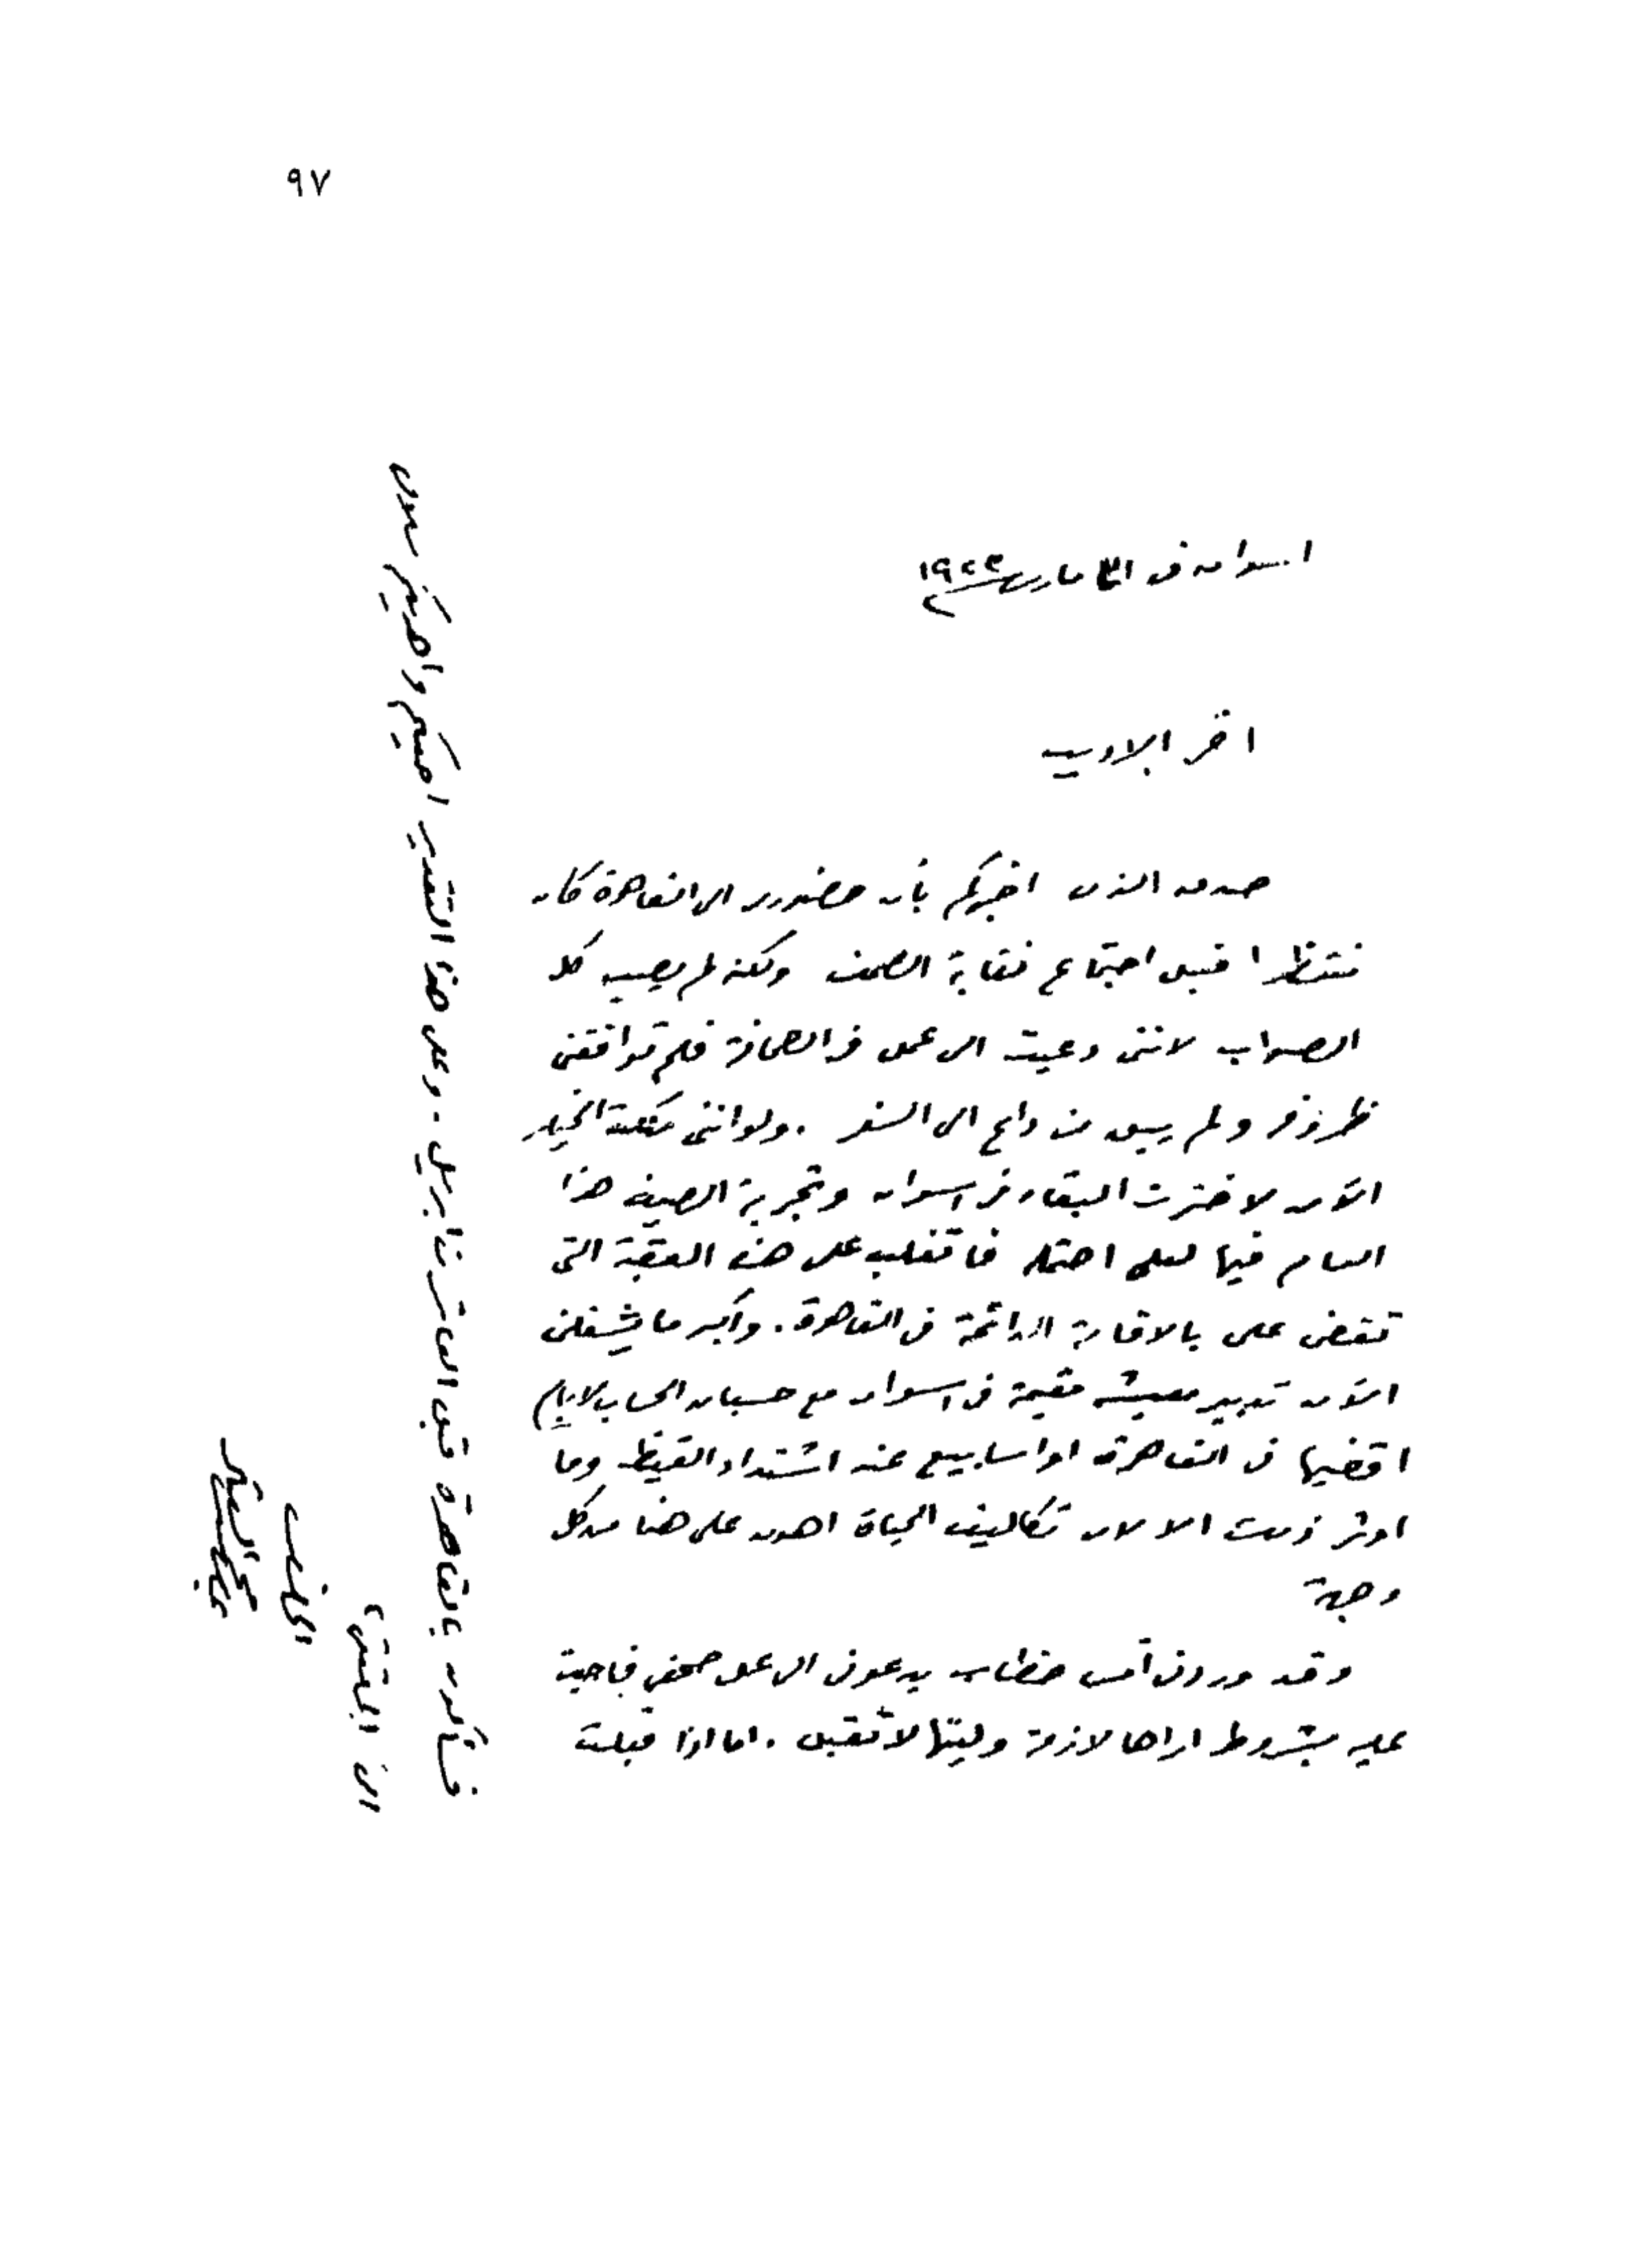 ٩٧
اسوان في ٣١ مارس ١٩٢٢
اخي الاديب
صدق الذي اخبركم بأن حضوري الى القاهرة كان
منتظرا قبيل اجتماع نقابة الصحف ولكنه لم يصب كل
الصواب لانني دعيت الى عمل في الصحافة فلم توافقني
ظروفه ولم يبق من داع الى السفر . ولو انني ملكت الخيار
الآن لاخترت البقاء في اسوان وتجربة الصيف هذا
العام فيها لعلي احتمله فاتغلب على هذه العقبة التي
تقضي علي بالاقامة الدائمة في القاهرة . وأكبر ما يشغلني
الآن تدبير معيشة مقيمة في اسوان مع حسبان الحساب لايام
اقضيها في القاهرة او اسابيع عند اشتداد القيظ وما
اوثر ذلك الا لان تكاليف الحياة اهون علي هنا من كل
وجهة
وقد وردني أمس خطاب يدعوني الى عمل صحفي فاجبت
عليه بشروط اراها لازمة وليتها لا تقبل . اما اذا قبلت
فسأكون بالقاهرة قبل العاشر من ابريل - وعلى هذا التقدير احييكم واحيي
الى الملتقى
المخلص
عباس العقاد